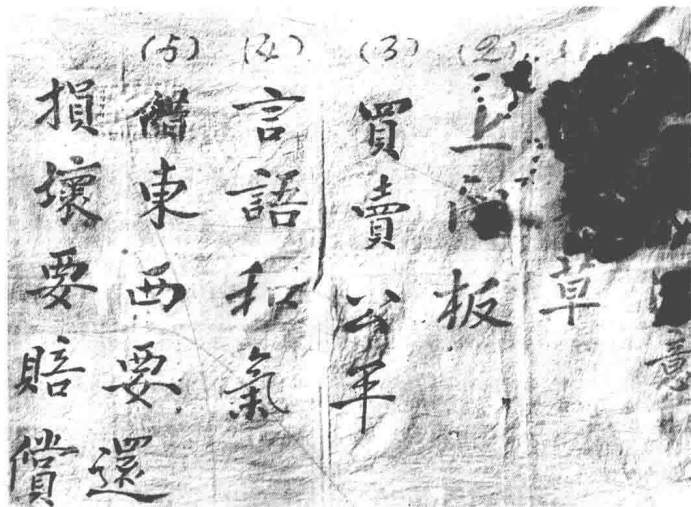 意
草
(2) 板
(3) 買賣公平
(4) 言語和氣
(5) 借東西要還
損壞要賠償